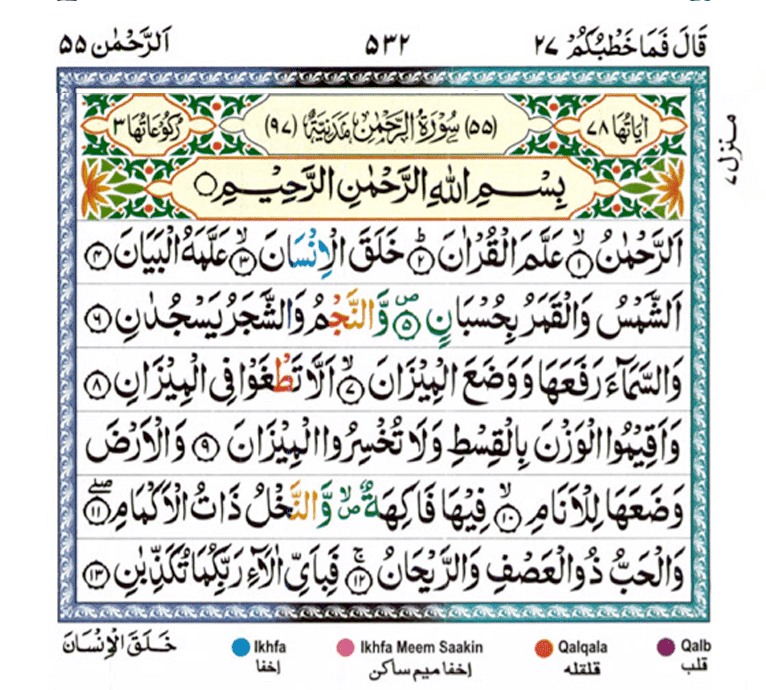 قَالَ فَمَا خَطْبُكُمْ ٢٧ ٥٣٢ اَلرَّحْمٰن ٥٥
اٰیَاتُهَا ٧٨ (٥٥) سُوْرَةُ الرَّحْمٰنِ مَدَنِيَّةٌ (٩٧) رُكُوْعَاتُهَا ٣
منزل ٧
بِسْمِ اللّٰهِ الرَّحْمٰنِ الرَّحِيْمِ
اَلرَّحْمٰنُ ۙ﴿١﴾ عَلَّمَ الْقُرْاٰنَ ؕ﴿٢﴾ خَلَقَ الْاِنْسَانَ ۙ﴿٣﴾ عَلَّمَهُ الْبَيَانَ ﴿٤﴾
اَلشَّمْسُ وَالْقَمَرُ بِحُسْبَانٍ ۪﴿٥﴾ وَّالنَّجْمُ وَالشَّجَرُ يَسْجُدٰنِ ﴿٦﴾
وَالسَّمَآءَ رَفَعَهَا وَوَضَعَ الْمِيْزَانَ ۙ﴿٧﴾ اَلَّا تَطْغَوْا فِى الْمِيْزَانِ ﴿٨﴾
وَاَقِيْمُوا الْوَزْنَ بِالْقِسْطِ وَلَا تُخْسِرُوا الْمِيْزَانَ ﴿٩﴾ وَالْاَرْضَ
وَضَعَهَا لِلْاَنَامِ ۙ﴿١٠﴾ فِيْهَا فَاكِهَةٌ ۪ۙ وَّالنَّخْلُ ذَاتُ الْاَكْمَامِ ۖ﴿١١﴾
وَالْحَبُّ ذُو الْعَصْفِ وَالرَّيْحَانُ ۚ﴿١٢﴾ فَبِاَىِّ اٰلَآءِ رَبِّكُمَا تُكَذِّبٰنِ ﴿١٣﴾
خَلَقَ الْاِنْسَانَ
Ikhfa Ikhfa Meem Saakin Qalqala Qalb
إخفا إخفا ميم ساكن قلقله قلب